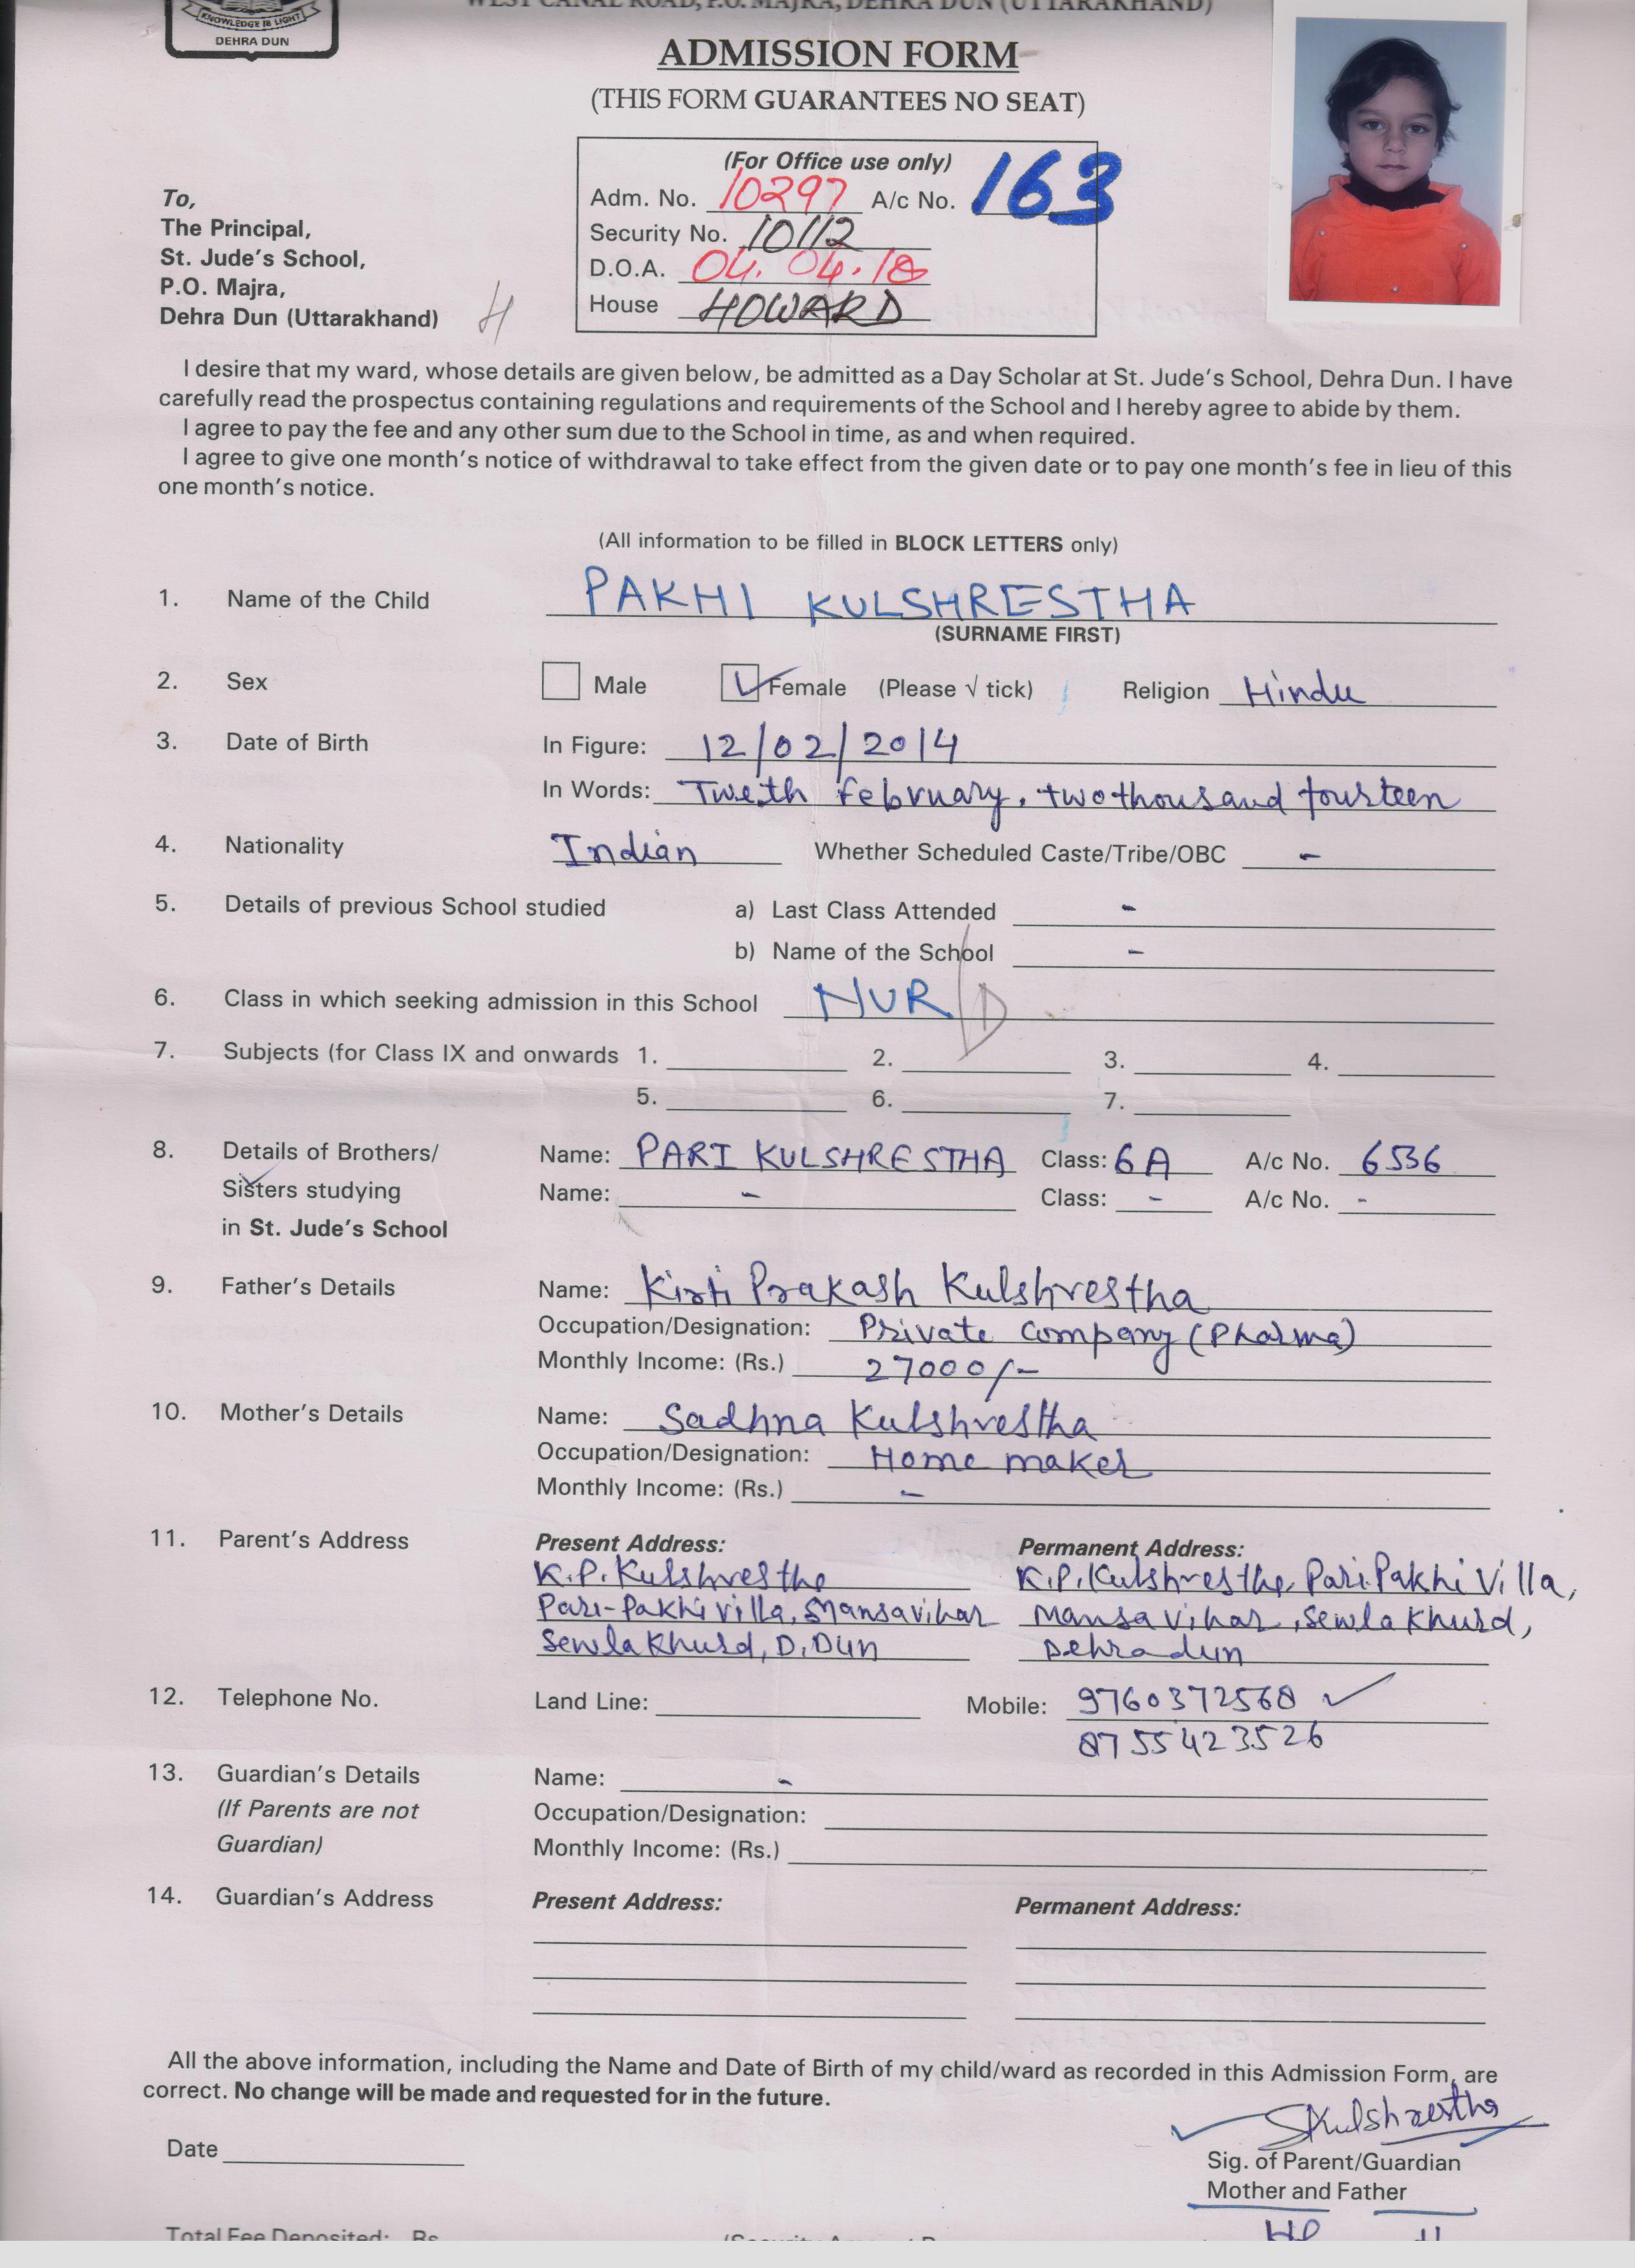 WEST CANAL ROAD, P.O. MAJRA, DEHRA DUN (UTTARAKHAND)
KNOWLEDGE IS LIGHT
DEHRA DUN
ADMISSION FORM
(THIS FORM GUARANTEES NO SEAT)
(For Office use only)
Adm. No. 10297 A/c No. 163
Security No. 10112
D.O.A. 04.04.18
House HOWARD
To,
The Principal,
St. Jude's School,
P.O. Majra,
Dehra Dun (Uttarakhand) H
I desire that my ward, whose details are given below, be admitted as a Day Scholar at St. Jude's School, Dehra Dun. I have
carefully read the prospectus containing regulations and requirements of the School and I hereby agree to abide by them.
I agree to pay the fee and any other sum due to the School in time, as and when required.
I agree to give one month's notice of withdrawal to take effect from the given date or to pay one month's fee in lieu of this
one month's notice.
(All information to be filled in BLOCK LETTERS only)
1. Name of the Child PAKHI KULSHRESTHA
(SURNAME FIRST)
2. Sex Male Female (Please √ tick) Religion Hindu
3. Date of Birth In Figure: 12/02/2014
In Words: Tweth february, two thousand fourteen
4. Nationality Indian Whether Scheduled Caste/Tribe/OBC -
5. Details of previous School studied a) Last Class Attended -
b) Name of the School -
6. Class in which seeking admission in this School NUR/D
7. Subjects (for Class IX and onwards 1. 2. 3. 4.
5. 6. 7.
8. Details of Brothers/ Name: PARI KULSHRESTHA Class: 6A A/c No. 6536
Sisters studying Name: - Class: - A/c No. -
in St. Jude's School
9. Father's Details Name: Kirti Prakash Kulshrestha
Occupation/Designation: Private Company (Pharma)
Monthly Income: (Rs.) 27000/-
10. Mother's Details Name: Sadhna Kulshrestha
Occupation/Designation: Home maker
Monthly Income: (Rs.) -
11. Parent's Address Present Address: Permanent Address:
K.P. Kulshrestha K.P. Kulshrestha, Pari Pakhi Villa,
Pari-Pakhi villa, Mansavihar Mansa Vihar, Sewla Khurd,
Sewla Khurd, D.Dun Dehradun
12. Telephone No. Land Line: Mobile: 9760372568 ✓
8755423526
13. Guardian's Details Name: -
(If Parents are not Occupation/Designation:
Guardian) Monthly Income: (Rs.)
14. Guardian's Address Present Address: Permanent Address:
All the above information, including the Name and Date of Birth of my child/ward as recorded in this Admission Form, are
correct. No change will be made and requested for in the future.
SKulshrestha
Date
Sig. of Parent/Guardian
Mother and Father
Total Fee Deposited: Rs.